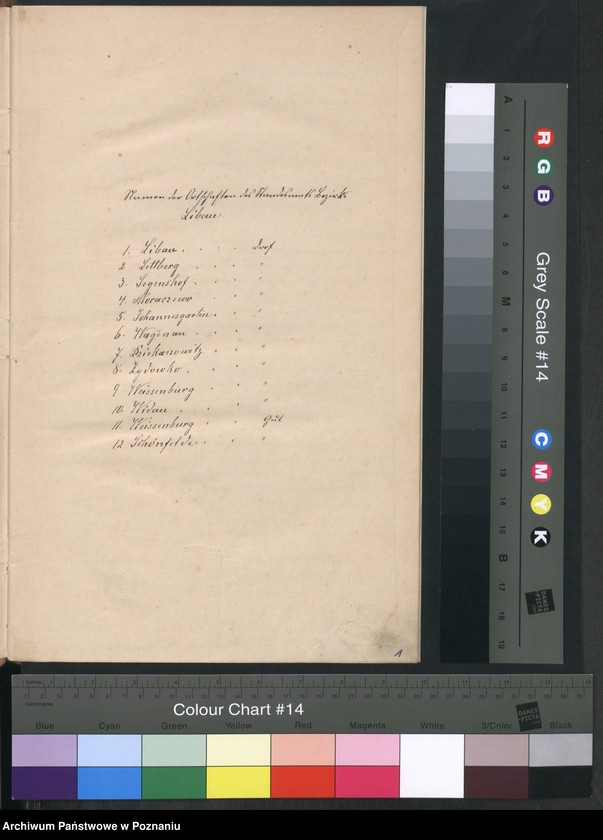 Namen der Ortschaften des Standesamts Bezirks
Libau.
1. Libau . . . . Dorf
2. Lettberg . . . "
3. Segenshof . . . "
4. Moraczewo . . "
5. Johannesgarten . . "
6. Wagenau . . . "
7. Dziekanowitz . . "
8. Zydowko . . . "
9. Weissenburg . . "
10. Widau . . . "
11. Weissenburg . . Gut
12. Schönfelde . . "
1
A
1
2
3
4
5
6
M
8
9
10
11
12
13
14
15
B
17
18
19
R
G
B
Grey Scale #14
C
M
Y
K
DANES
PICTA
Colour Chart #14
Blue Cyan Green Yellow Red Magenta White 3/Color Black
DANES
PICTA
Archiwum Państwowe w Poznaniu